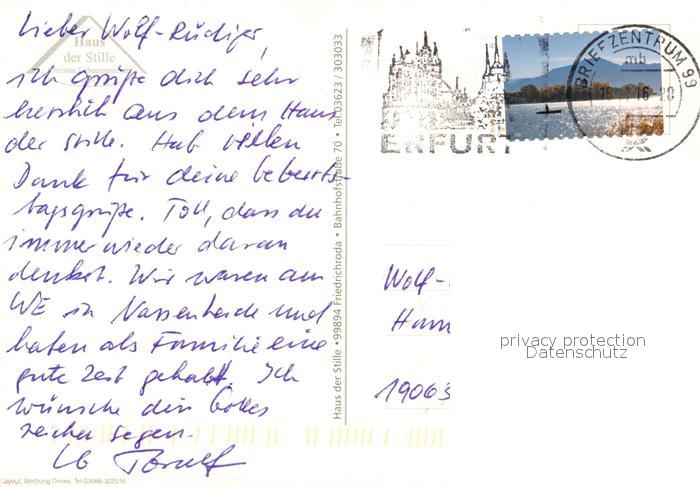 Lieber Wolf-Rüdiger,
ich grüße dich sehr
herzlich aus dem Haus
der Stille. Hab vielen
Dank für deine Geburts-
tagsgrüße. Toll, dass du
immer wieder daran
denkst. Wir waren am
WE in Nassenheide und
haben als Familie eine
gute Zeit gehabt. Ich
wünsche dir Gottes
reichen Segen.
Haus
der Stille
Layout, Werbung Drews, Tel 03686-322516
Haus der Stille • 99894 Friedrichroda • Bahnhofstraße 70 • Tel. 03623 / 303033
ERFURT
BRIEFZENTRUM 99
mb
Wolf-
Hann
19063
privacy protection
Datenschutz